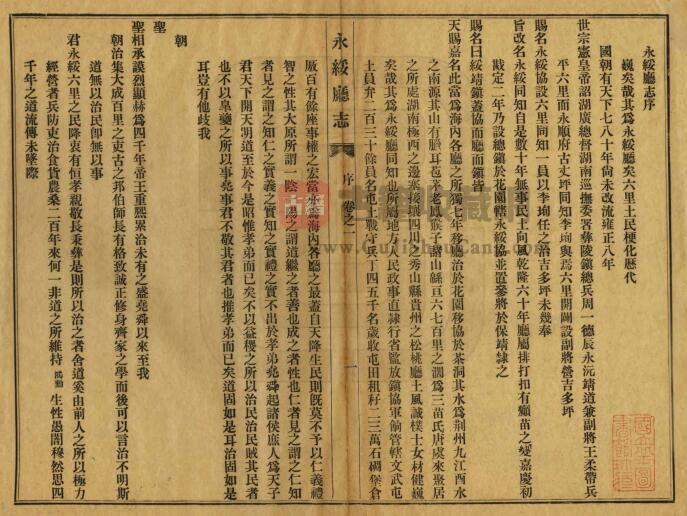 永綏廳志序
巍矣哉其爲永綏廳矣六里土民梗化歷代
國朝有天下七八十年尙未改流雍正八年
世宗憲皇帝詔湖廣總督湖南巡撫委署彝陵鎭總兵周一德辰永沅靖道兼副將王柔帶兵
平六里而永順府古丈坪同知李珣與焉六里開闢設副將營吉多坪
賜名永綏協設六里同知一員以李珣任之治吉多坪未幾奉
旨改名永綏同知自是數十年無事民土向風乾隆六十年廳屬排打扣有癲苗之變嘉慶初
戡定二年乃設總鎭於花園轄永綏協並置參將於保靖隷之
賜名曰綏靖鎭蓋協而廳而鎭皆
天賜嘉名此當爲海內各廳之所獨七年移廳治於花園移協於茶洞其水爲荆州九江酉水
之南源其山有臘耳苞茅老鳳猴子諸山緜亘六七百里之濶爲三苗氏唐虞來聚居
之所處湖南極西之邊寨接壤四川之秀山縣貴州之松桃廳土風誠樸士女材健巍
矣哉其爲永綏廳同知也所屬地方人民政事直隷行省監放鎭協軍餉管轄文武屯
土員弁二百三十餘員名屯土戰守兵丁四五千名歲收屯田租籽二三萬石碉堡倉
永綏廳志
序 卷之一
一
厫百有餘座事權之宏當亦爲海內各廳之最蓋自天降生民則旣莫不予以仁義禮
智之性其大原所謂一陰一陽之謂道繼之者善也成之者性也仁者見之謂之仁知
者見之謂之知仁之實義之實知之實禮之實不出於孝弟堯舜起諸侯庶人爲天子
君天下開天明道至於今是昭惟孝弟而已矣不以益稷之所以治民治民賊其民者
也不以皐夔之所以事堯事君不敬其君者也推孝弟而已矣道固如是耳治固如是
耳豈有他歧我
朝
聖
聖相承謨烈顯赫爲四千年帝王重熙累治未有之盛堯舜以來至我
朝治集大成百里之吏古之邦伯師長有格致誠正修身齊家之學而後可以言治不明斯
道無以治民卽無以事
君永綏六里之民降衷有恒孝親敬長秉彝是則所以治之者舍道奚由前人之所以極力
經營者兵防吏治食貨農桑二百年來何一非道之所維持鴻勳生性愚闇穆然思四
千年之道流傳未墜際